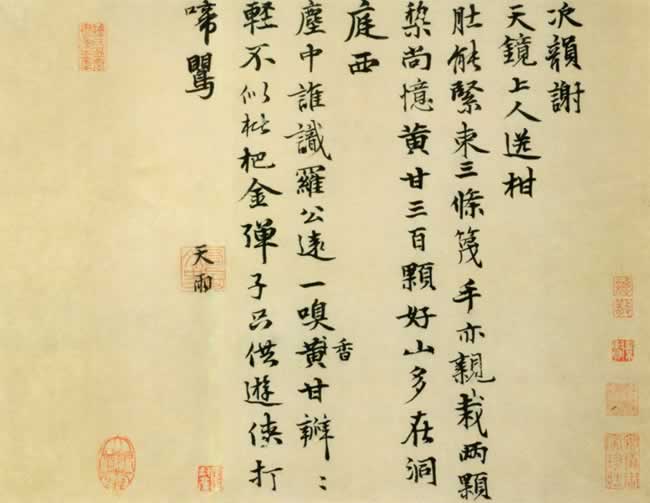 次韻謝
天鏡上人送柑
肚能緊束三條篾手亦親栽兩顆
棃尚憶黄甘三百顆好山多在洞
庭西
塵中誰識羅公遠一嗅黄甘瓣〻
香
輕不似枇杷金彈子只供遊俠打
啼鸎
天雨